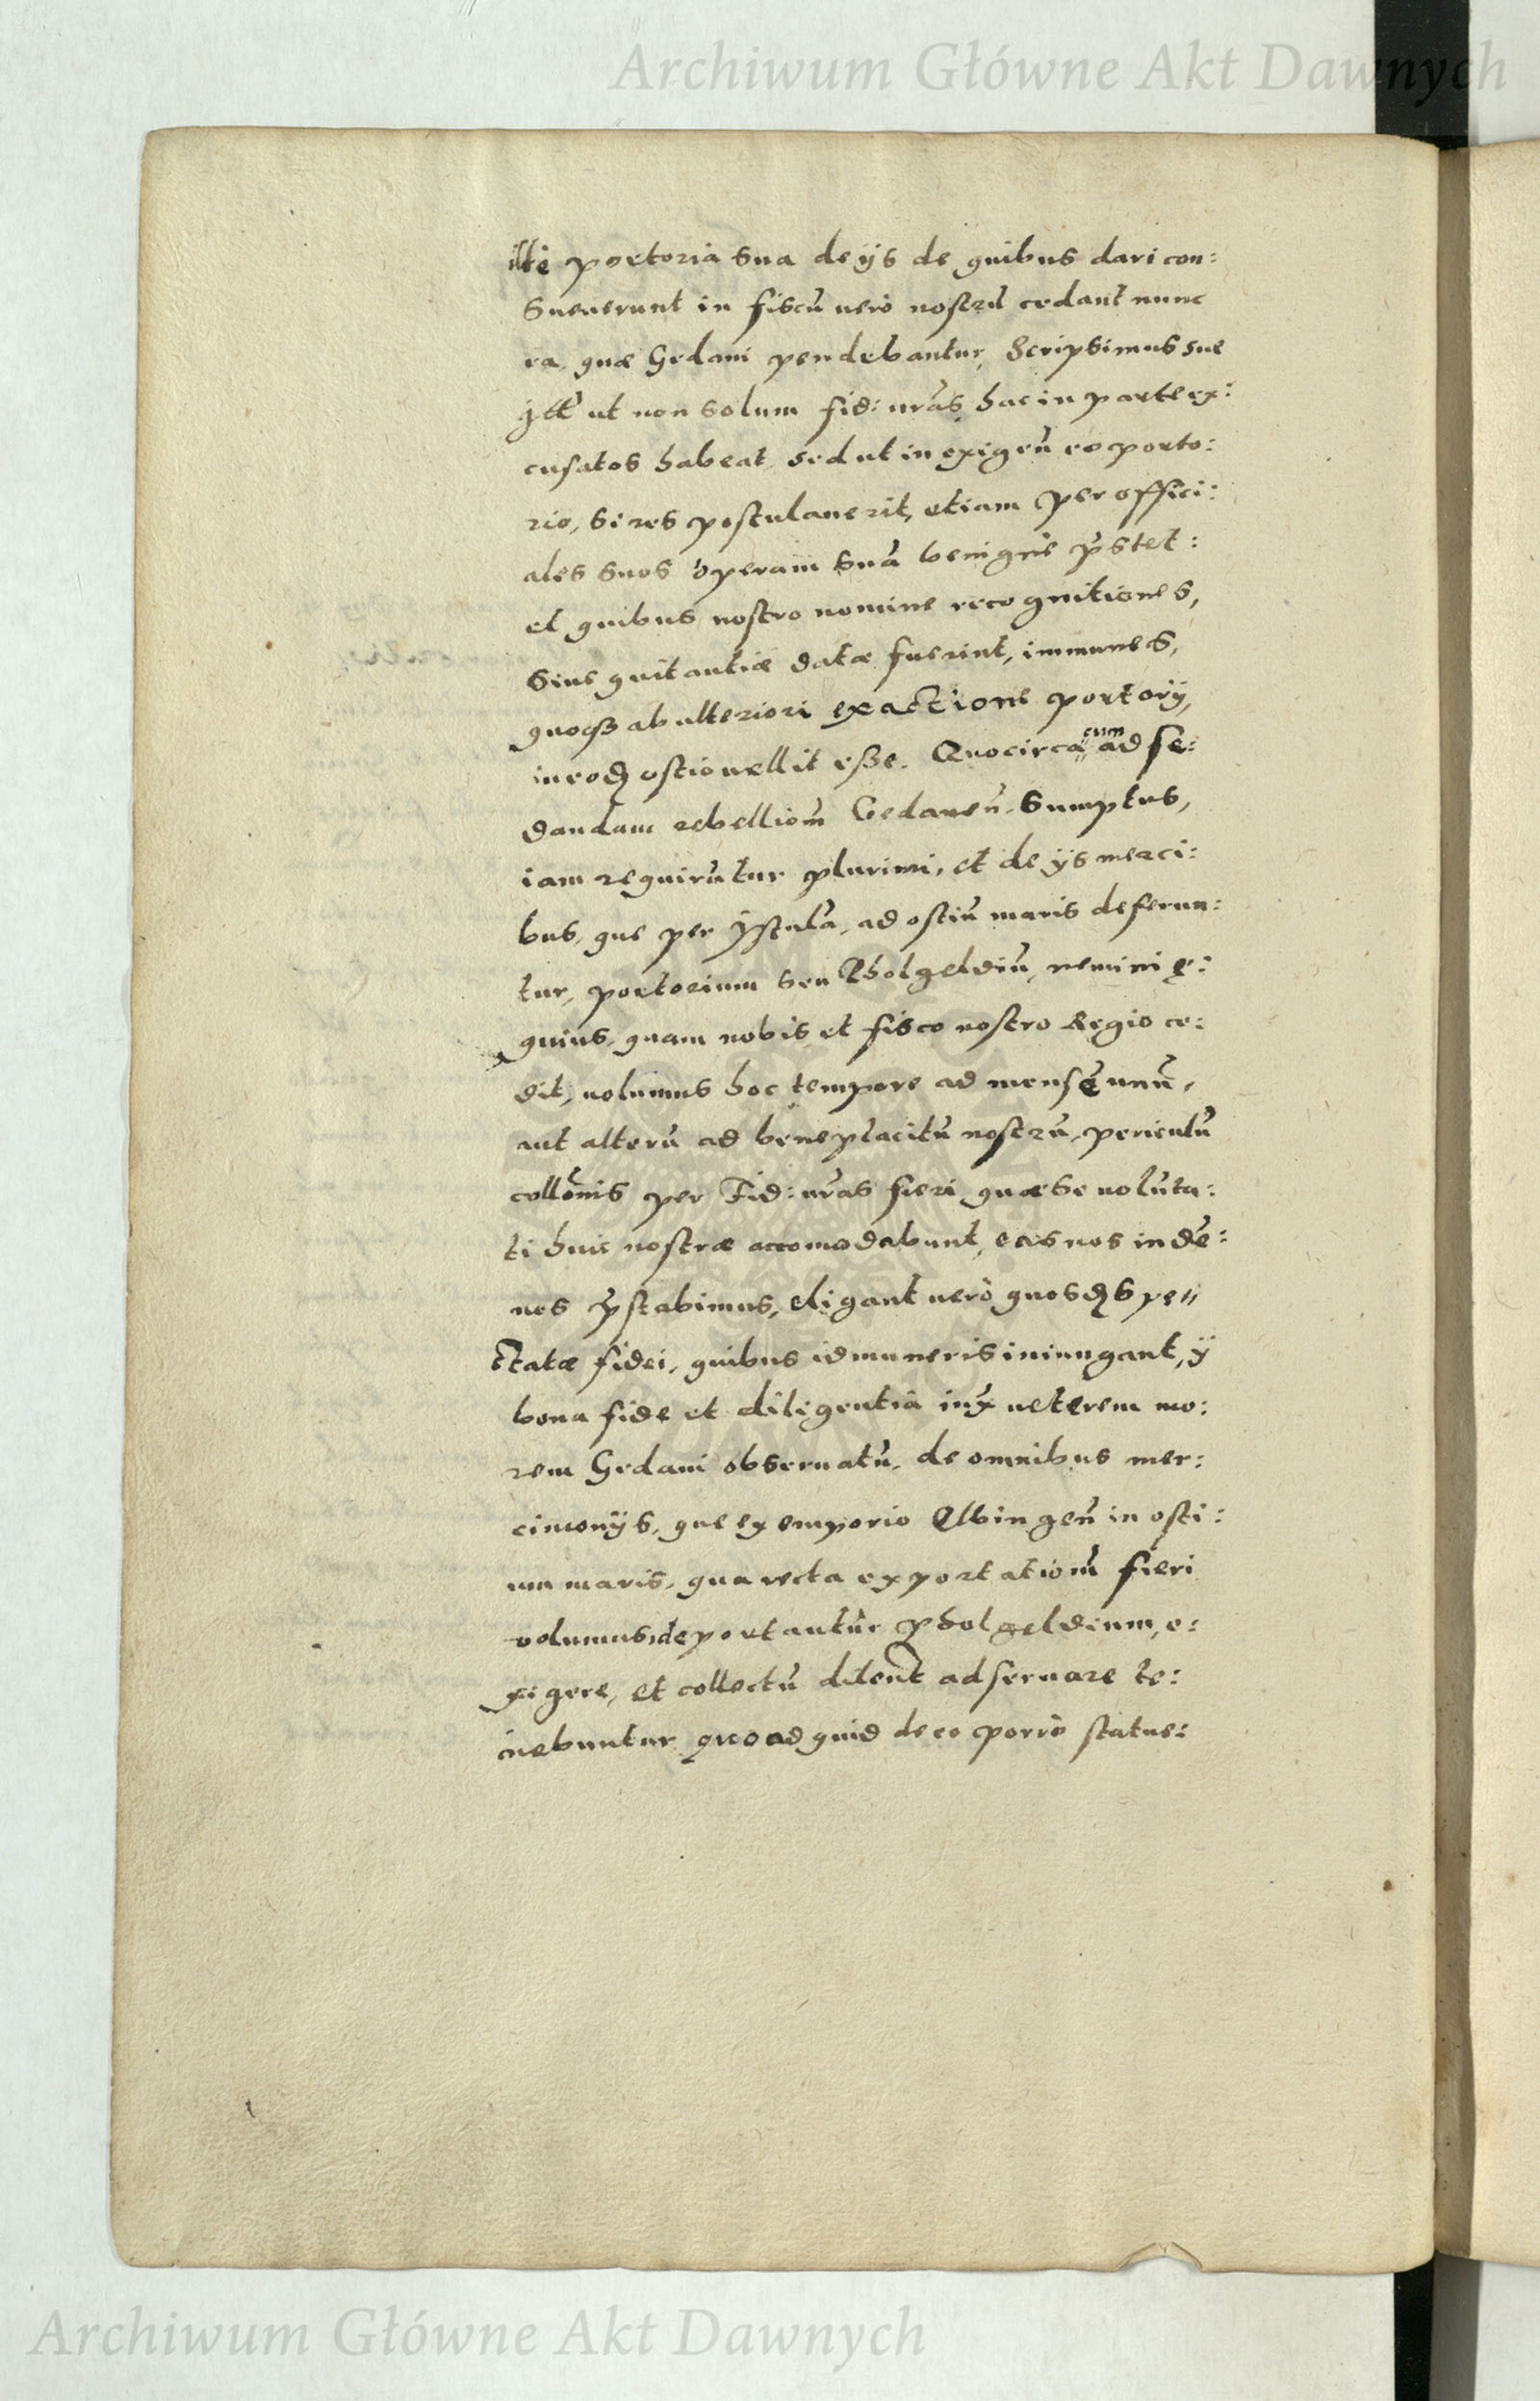 Archiwum Główne Akt Dawnych
illi portoria sua de ijs de quibus dari con:
sueuerunt in fiscū uerò nostrū cedant nunc
ea, quæ Gedani pendebantur, Scripsimus sue
ut non solum fid: urās, hac in parte ex:
cusatos habeat, sed ut in exigeñ eo porto:
rio, si res postulauerit, etiam per offici:
ales suos operam suā benignè p̄stet:
et quibus nostro nomine recognitiones,
siue quitantiæ datæ fuerint, immunes,
quoqз ab ulteriori exactione portorij,
in eođ ostio uellit esse. Quocirca cum ad se:
dandam rebellioñ Gedaneñ. Sumptus,
iam requirūtur plurimi, et de ijs merci:
bus, que per ystulā, ad ostiū maris deferun:
tur, portorium seu Pholgeldiū, nemini ę:
quius, quam nobis et fisco nostro Regio ce:
dit, uolumus hoc tempore ad mensē unū,
aut alterū ad beneplacitū nostrū, periculū
collōnis per Fid: urās fieri quæ se uolūta:
ti huic nostræ accomodabunt, eas nos indē:
nes p̄stabimus, eligant uerò quosđ spe„
ctatæ fidei, quibus id muneris iniungant, ij
bona fide et diligentia iux̄ ueterem mo:
rem Gedani obseruatū, de omnibus mer:
cimonijs, que ex emporio Elbingeñ in osti:
um maris, qua recta exportatioñ fieri
uolumus, deportantur pholgeldium, e:
xigere, et collectū dilent̄ adseruare te:
nebuntur quoad quid de eo porrò statue:
Archiwum Główne Akt Dawnych